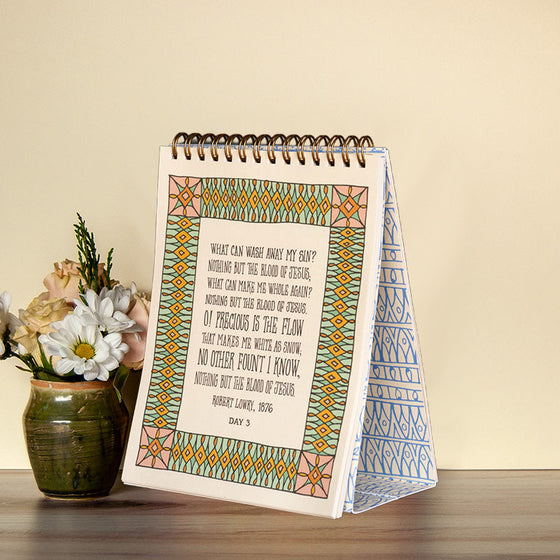 WHAT CAN WASH AWAY MY SIN?
NOTHING BUT THE BLOOD OF JESUS;
WHAT CAN MAKE ME WHOLE AGAIN?
NOTHING BUT THE BLOOD OF JESUS.
O! PRECIOUS IS THE FLOW
THAT MAKES ME WHITE AS SNOW;
NO OTHER FOUNT I KNOW,
NOTHING BUT THE BLOOD OF JESUS.
ROBERT LOWRY, 1876
DAY 3